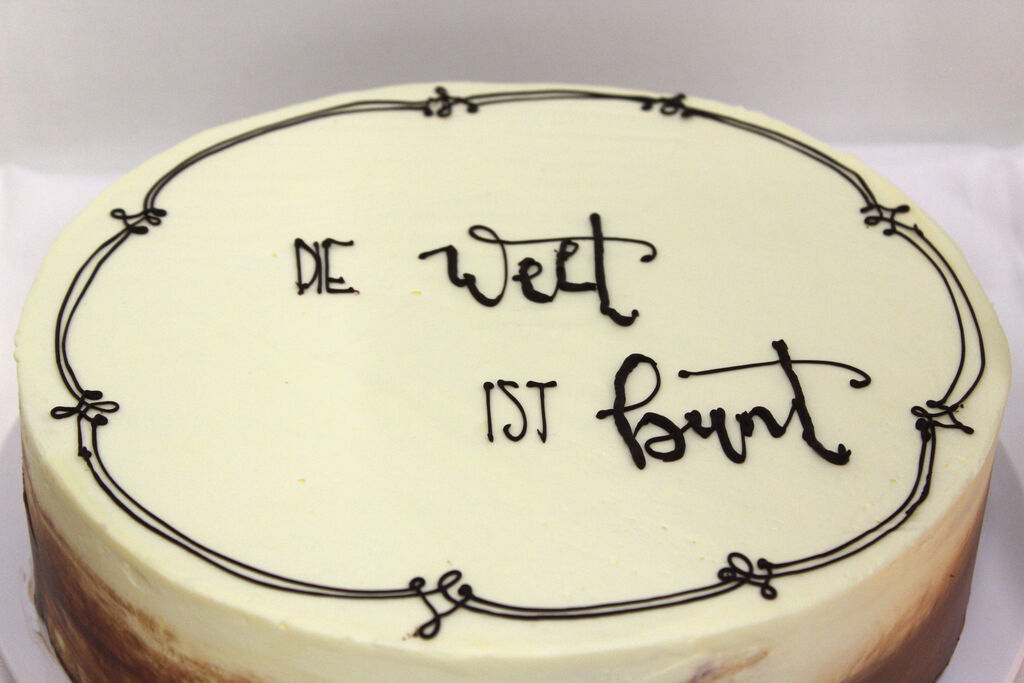 DIE Welt
IST bunt